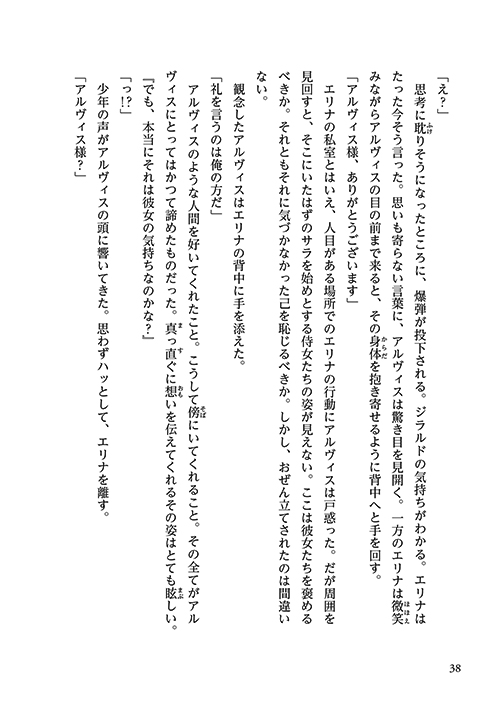 「え？」
　思考に耽りそうになったところに、爆弾が投下される。ジラルドの気持ちがわかる。エリナは
たった今そう言った。思いも寄らない言葉に、アルヴィスは驚き目を見開く。一方のエリナは微笑
みながらアルヴィスの目の前まで来ると、その身体を抱き寄せるように背中へと手を回す。
「アルヴィス様、ありがとうございます」
　エリナの私室とはいえ、人目がある場所でのエリナの行動にアルヴィスは戸惑った。だが周囲を
見回すと、そこにいたはずのサラを始めとする侍女たちの姿が見えない。ここは彼女たちを褒める
べきか。それともそれに気づかなかった己を恥じるべきか。しかし、おぜん立てされたのは間違い
ない。
　観念したアルヴィスはエリナの背中に手を添えた。
「礼を言うのは俺の方だ」
　アルヴィスのような人間を好いてくれたこと。こうして傍にいてくれること。その全てがアル
ヴィスにとってはかつて諦めたものだった。真っ直ぐに想いを伝えてくれるその姿はとても眩しい。
『でも、本当にそれは彼女の気持ちなのかな？』
「っ!?」
　少年の声がアルヴィスの頭に響いてきた。思わずハッとして、エリナを離す。
「アルヴィス様？」
38